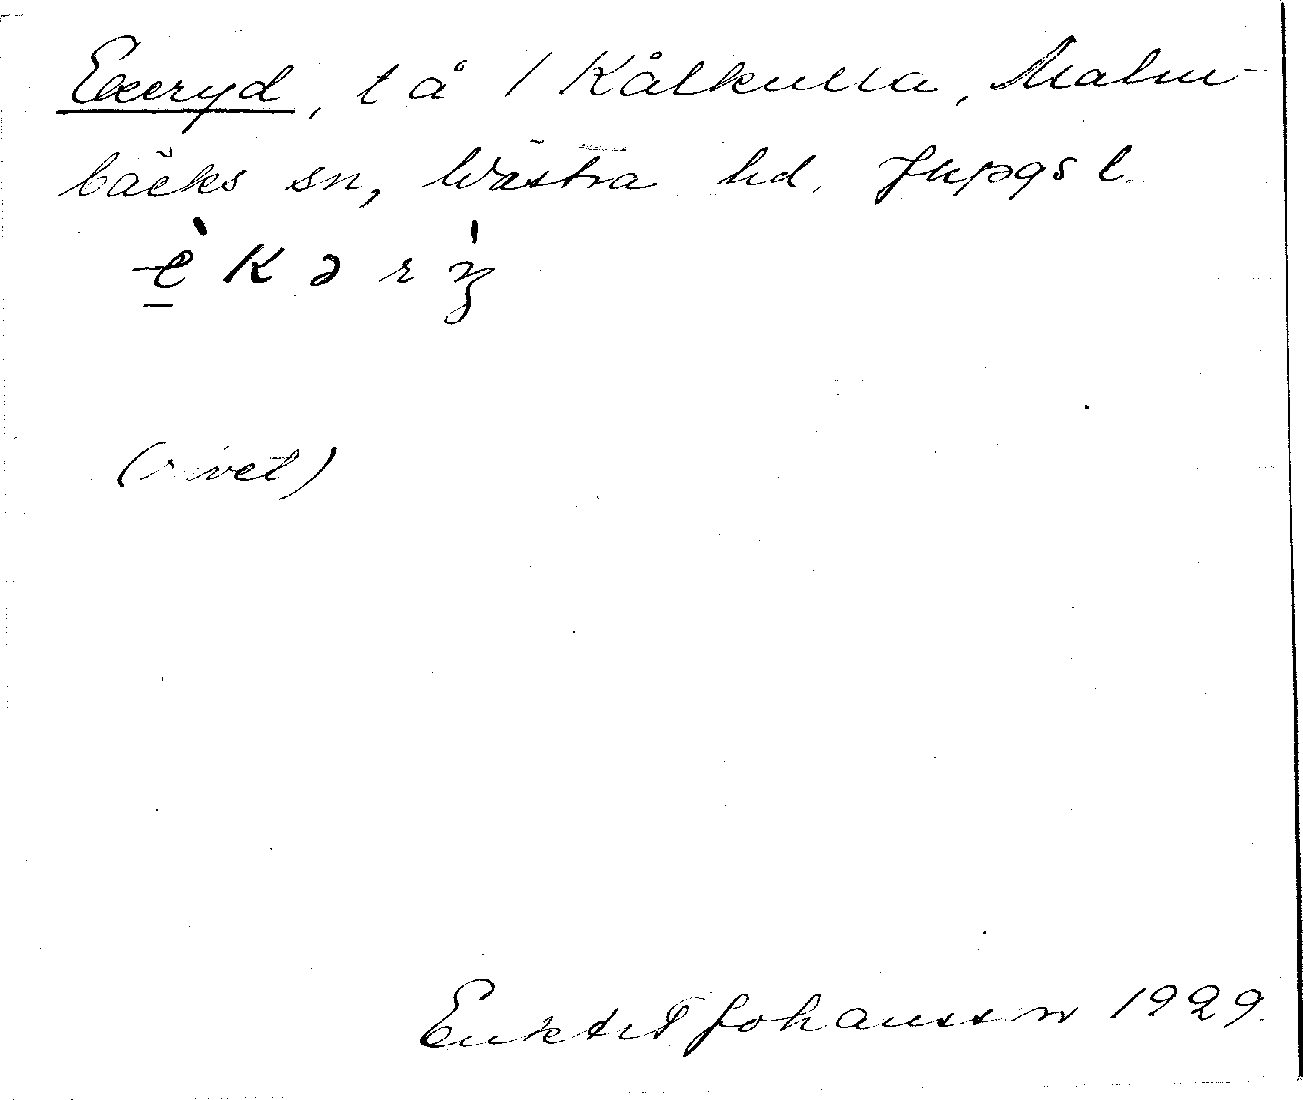 Ekeryd, t å / Kålkulla, Malm-
bäcks sn, Västra hd. Jnpgs l.
è k ə r ỳ
(rivet)
Enkht Johansson 1929.